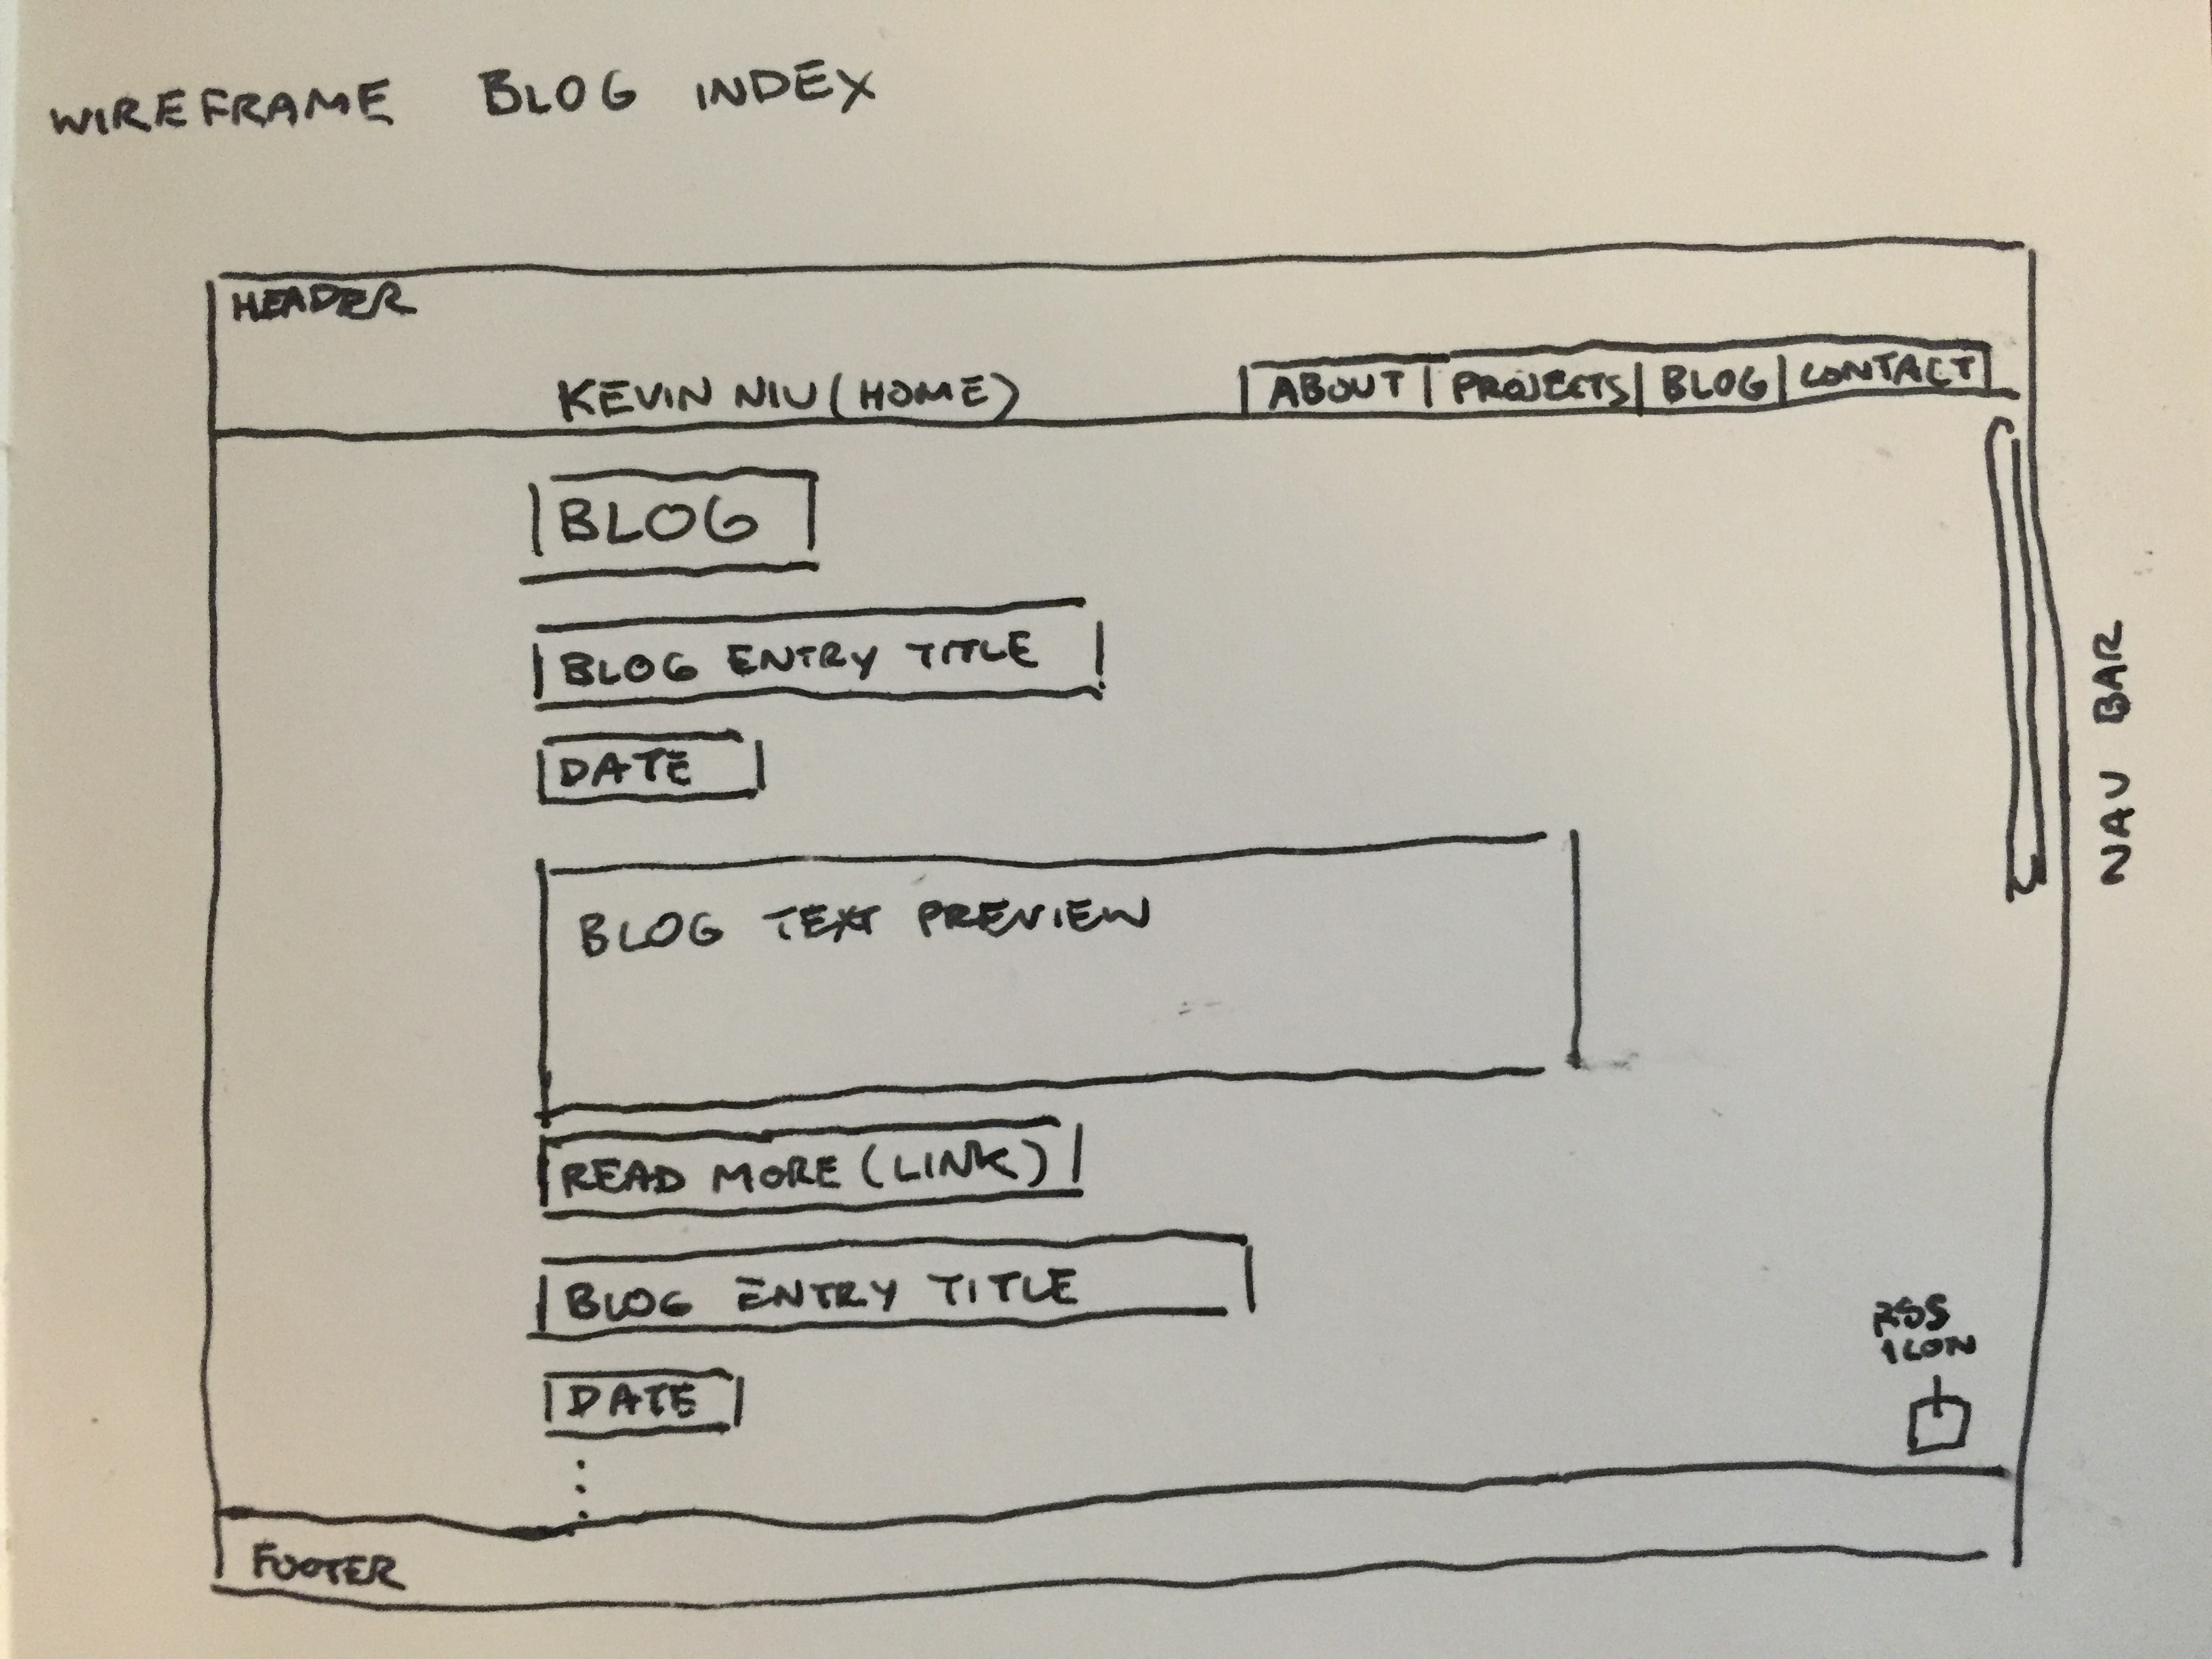 WIREFRAME BLOG INDEX
HEADER
KEVIN NIU (HOME)
ABOUT | PROJECTS | BLOG | CONTACT
BLOG
BLOG ENTRY TITLE
DATE
BLOG TEXT PREVIEW
READ MORE (LINK)
BLOG ENTRY TITLE
DATE
...
NAV BAR
RSS
ICON
FOOTER